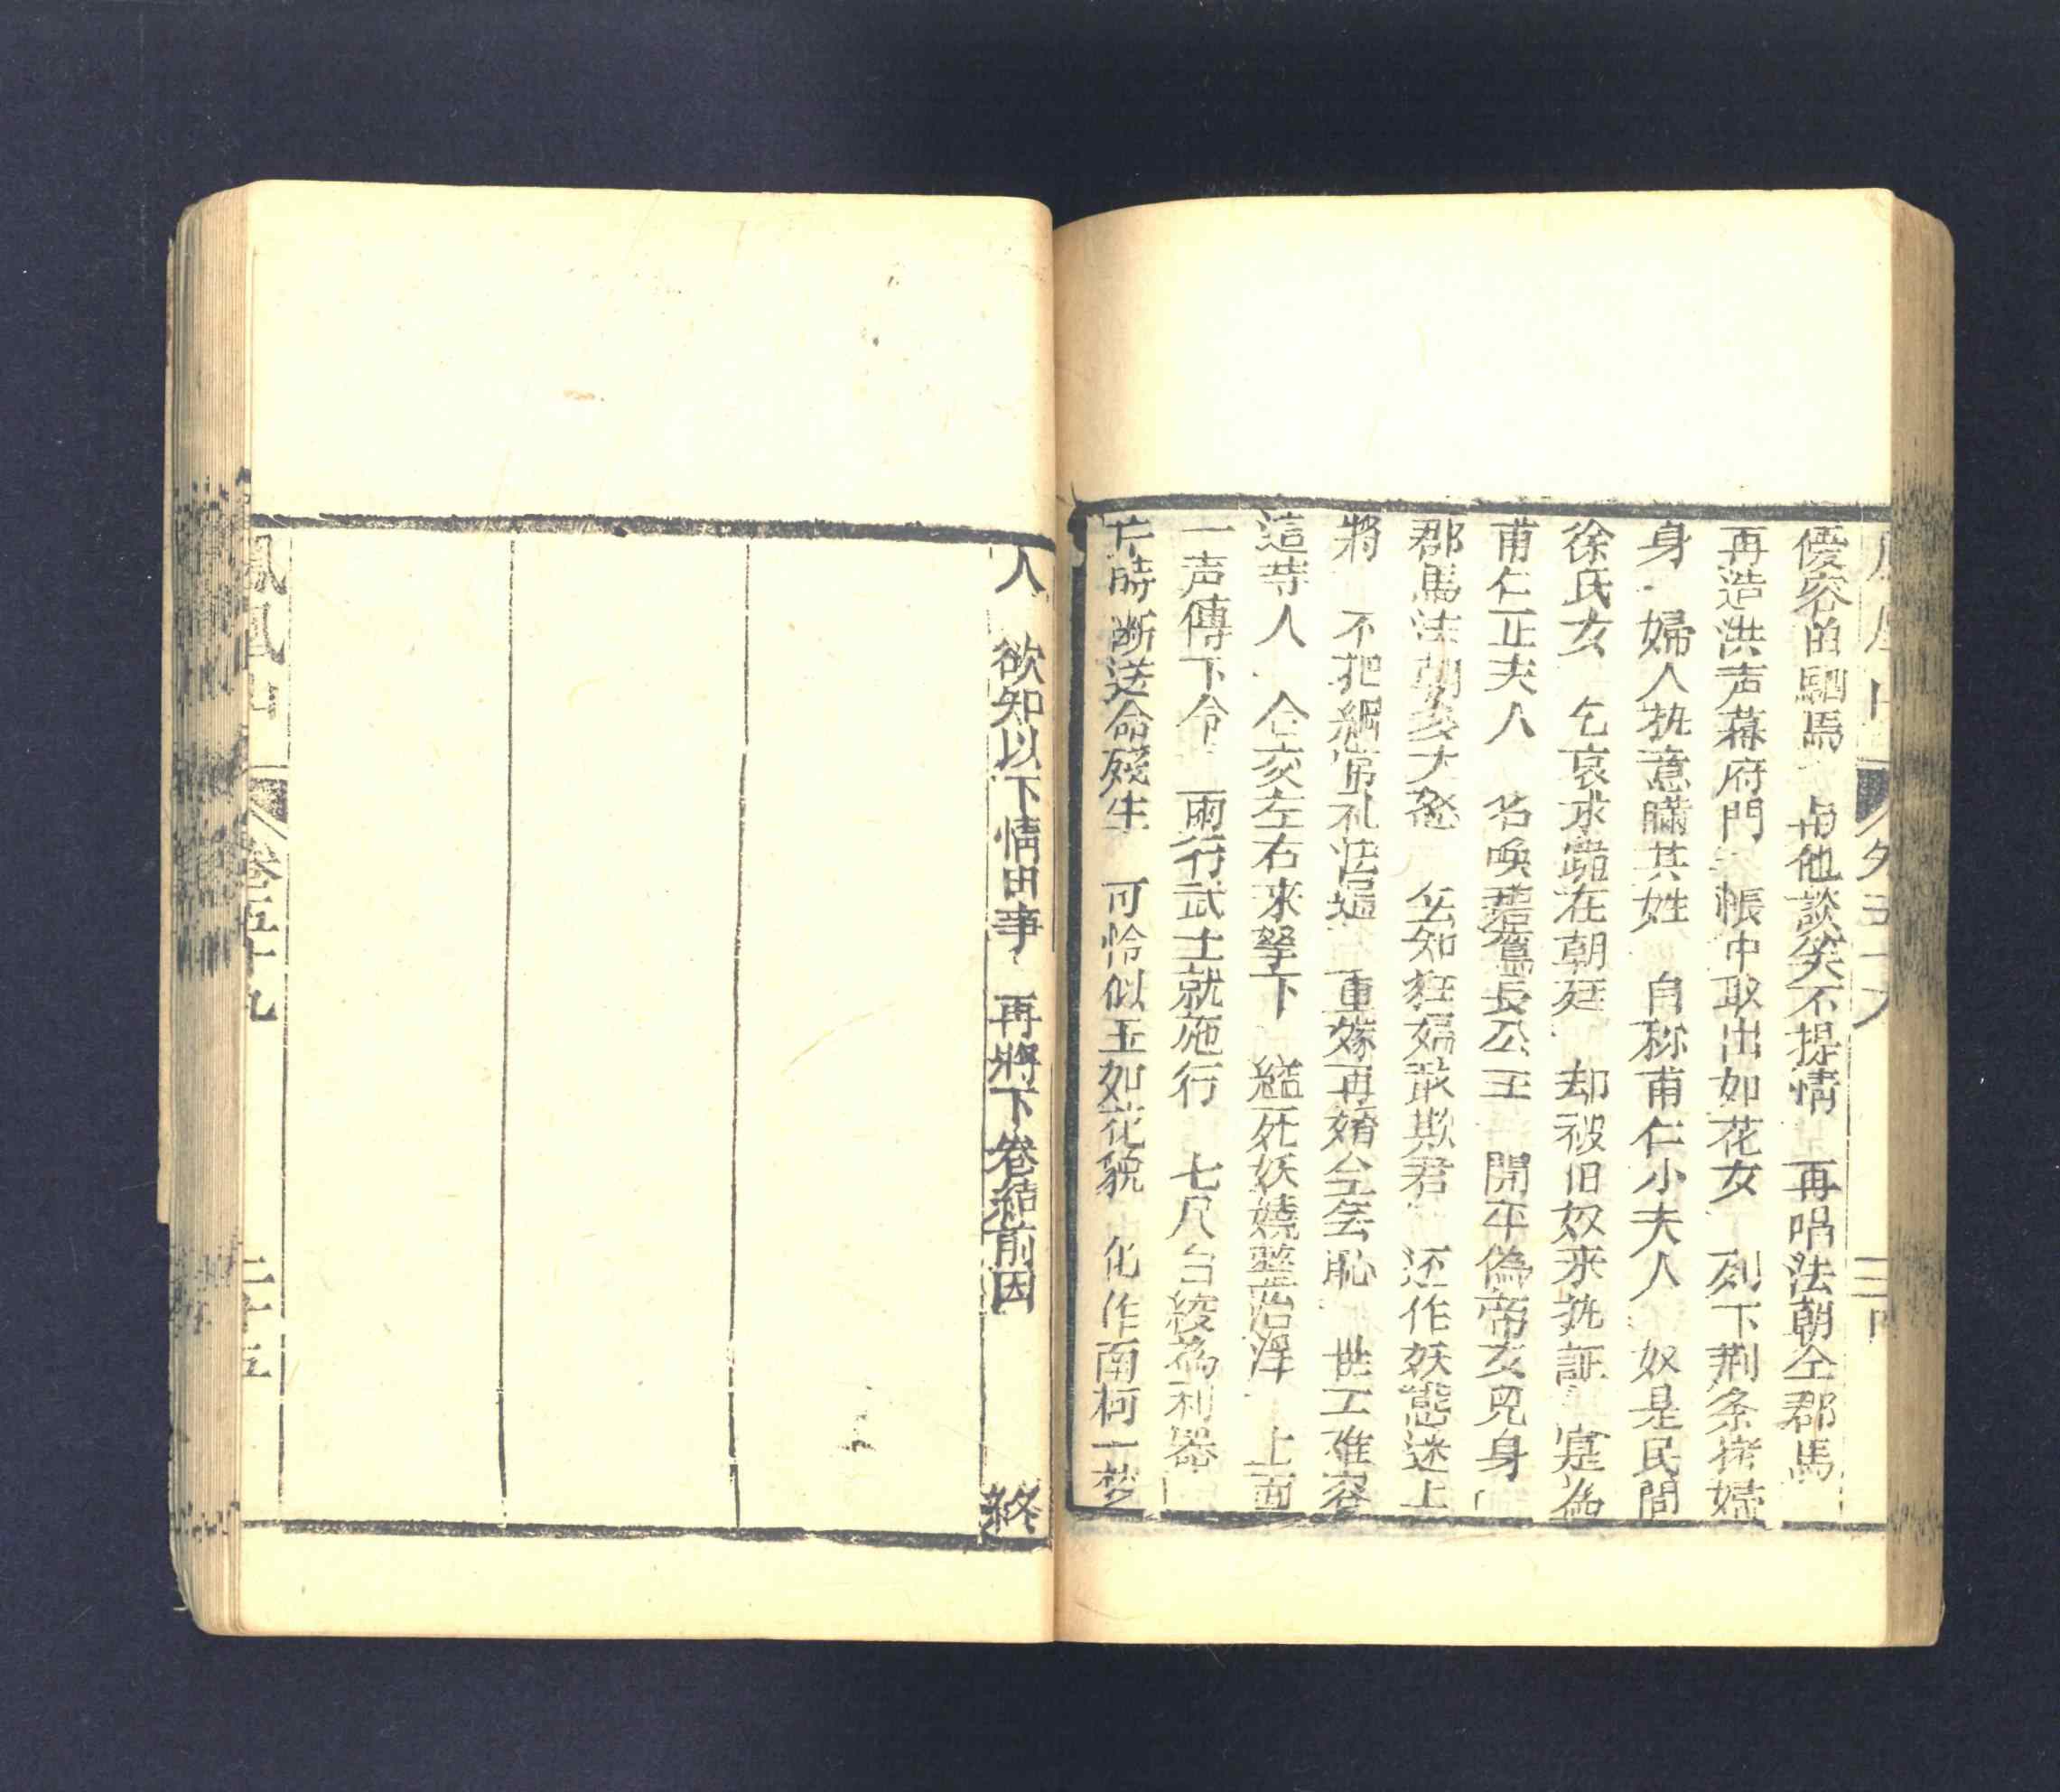 優容的駟馬 与他談笑不提情 再唱法朝仝郡馬
再造洪声幕府門 帳中取出如花女 列下荆条拷婦
身 婦人执意瞞其姓 自称甫仁小夫人 奴是民間
徐氏女 乞哀求蹤在朝廷 却被旧奴来执証 寔為
甫仁正夫人 名喚碧鸞長公主 開平偽帝女兒身
郡馬法朝亥大怒 厶知狂婦敢欺君 还作妖態迷上
將 不把綱常礼法遍 重嫁再婚全厷恥 世工难容
這等人 仝亥左右來拏下 縊死妖嬈整治淨 上面
一声傳下令 兩行武士就施行 七尺白綾為利器
片時断送命殘生 可怜似玉如花貌 化作南柯一梦
人 欲知以下情由事 再將下卷結前因 終
鳳凰山 卷五十九 二十五